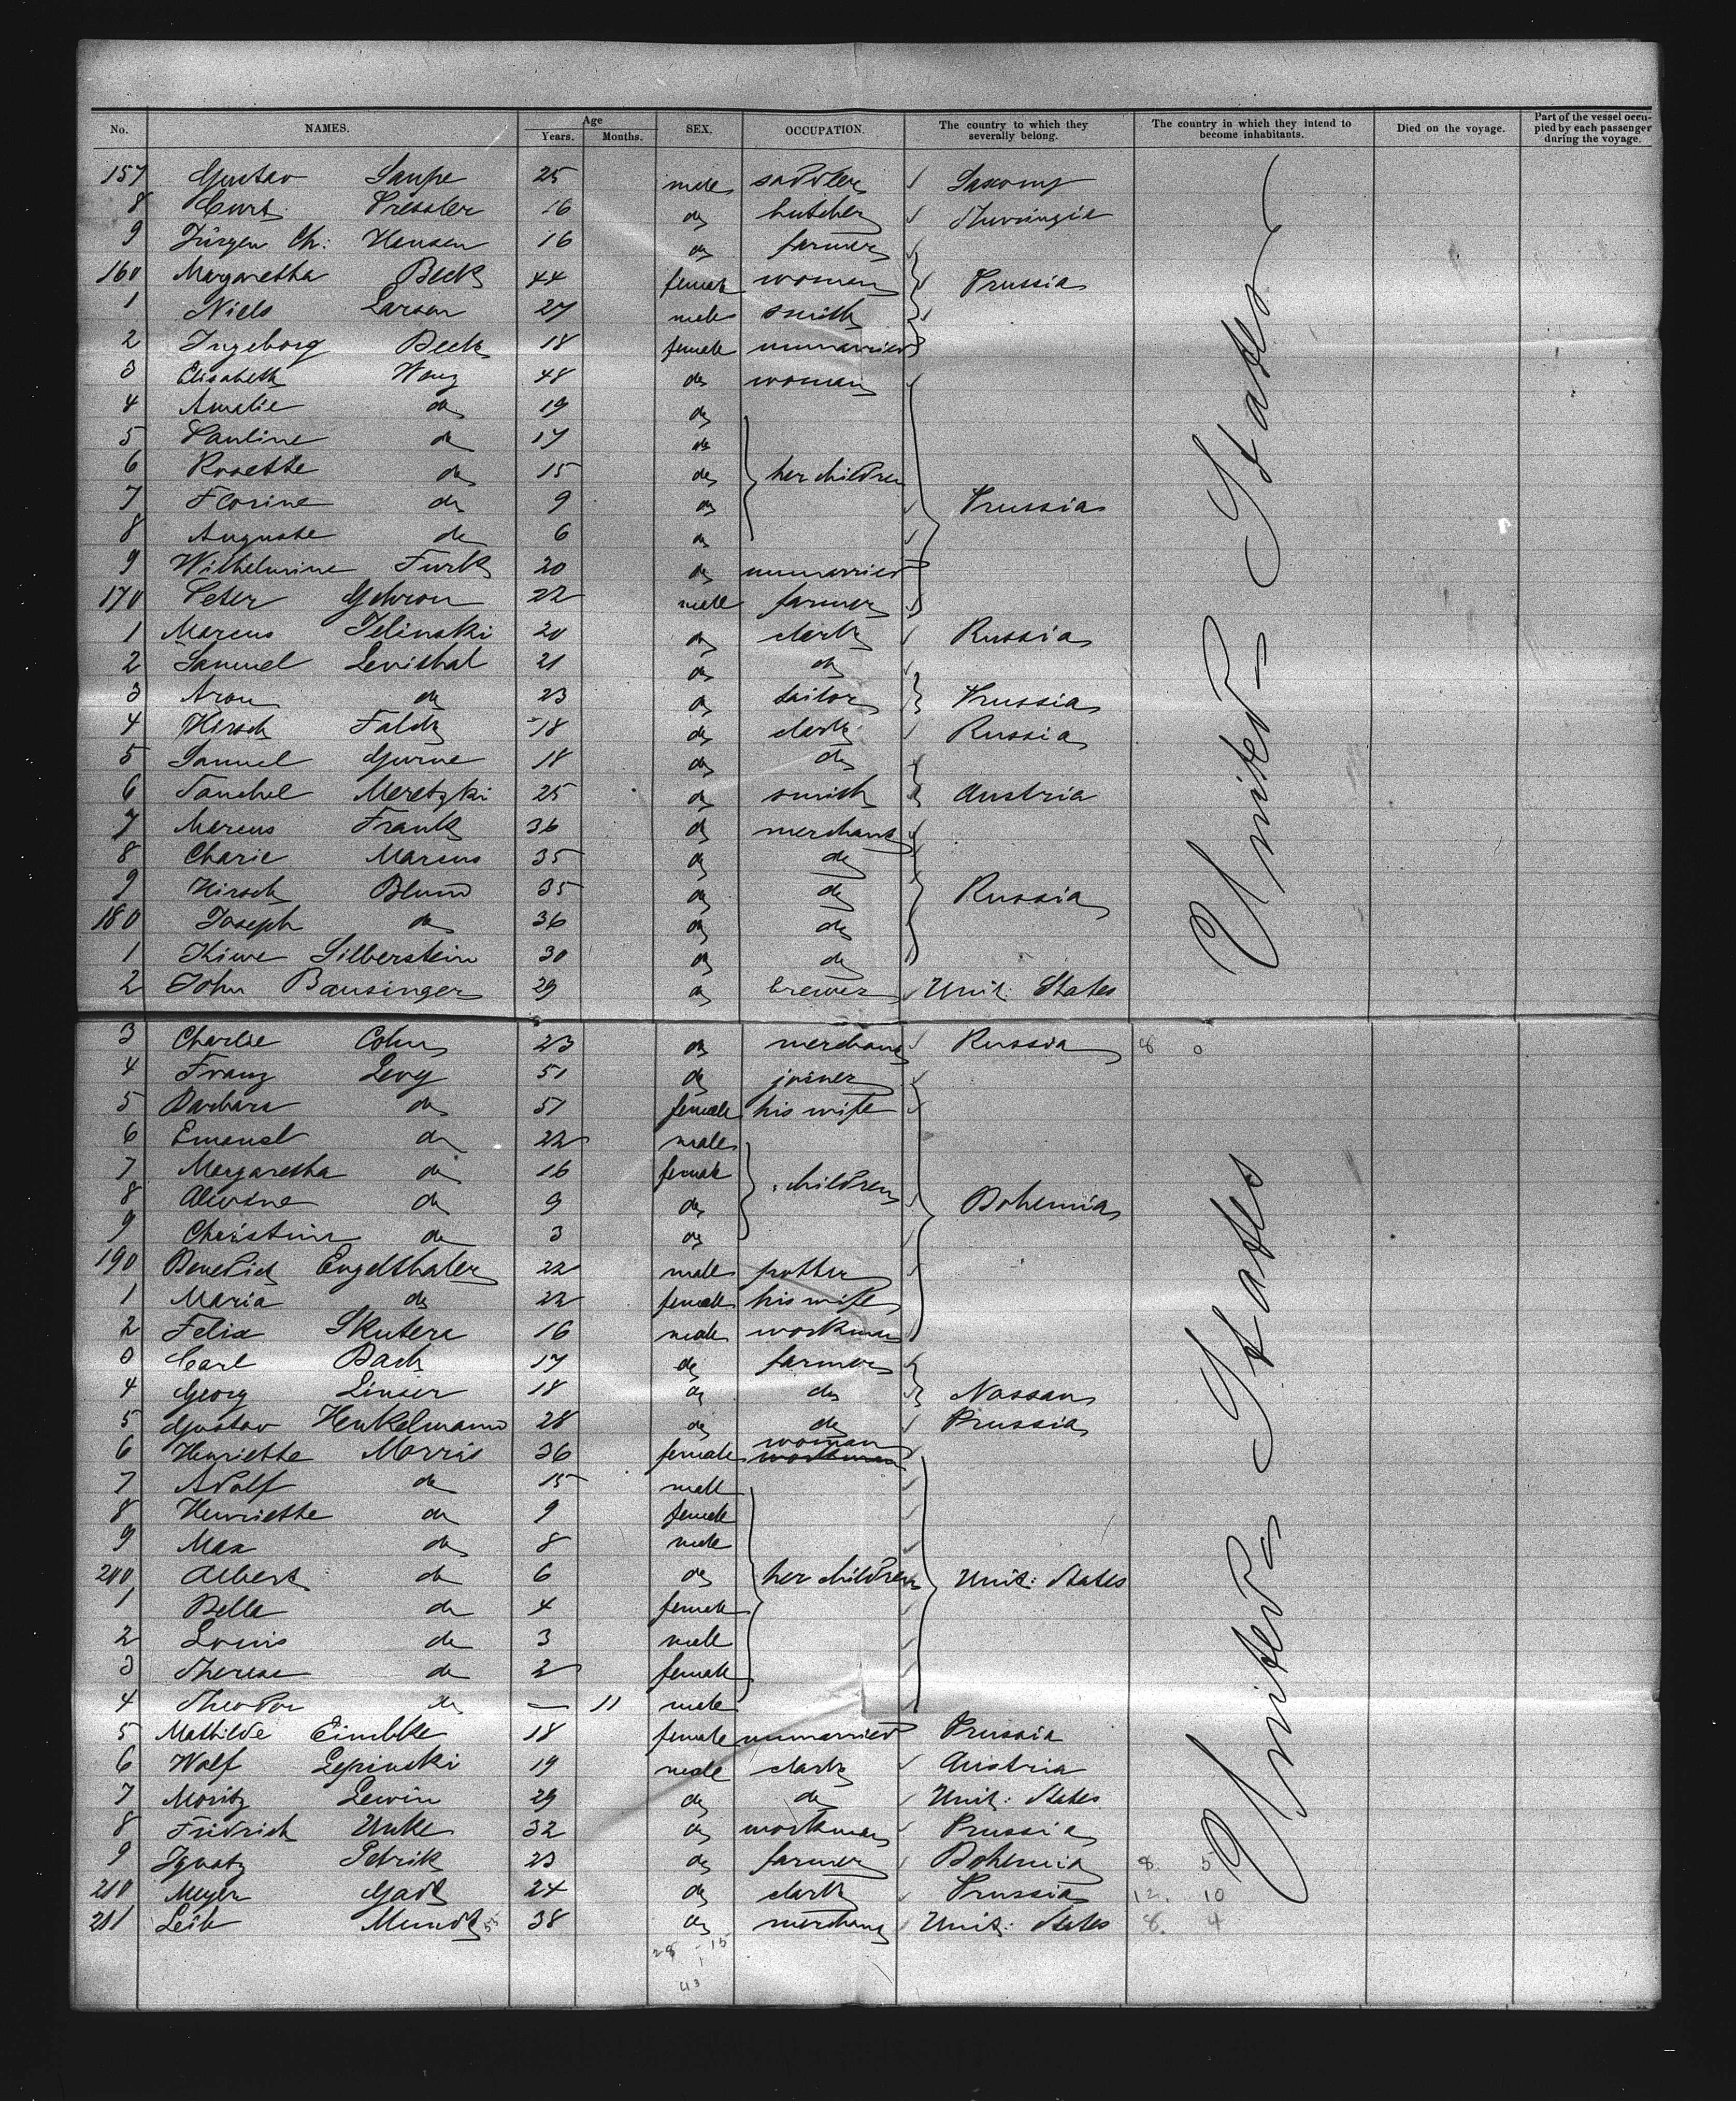 No. NAMES. Age Years. Months. SEX. OCCUPATION. The country to which they severally belong. The country in which they intend to become inhabitants. Died on the voyage. Part of the vessel occupied by each passenger during the voyage.
157 Gustav Saupe 25 male saddler Saxony
8 Curt Pressler 16 do butcher Thuringia
9 Jürgen Ch: Hansen 16 do farmer
160 Margaretha Beck 44 female woman Prussia
1 Niels Larsen 27 male smith
2 Ingeborg Beck 18 female unmarried
3 Elisabeth 48 do woman
4 Amalie do 19 do
5 Pauline do 17 do
6 Rosette do 15 do her children
7 Florine do 9 do Prussia
8 Auguste do 6 do
9 Wilhelmine Furk 20 do unmarried
170 Peter 22 male farmer
1 Marcus Jelinski 20 do clerk Russia
2 Samuel Levithal 21 do do
3 Aron do 23 do tailor Prussia
4 Hirsch Falck 18 do clerk Russia
5 Samuel 18 do do
6 Meretzki 25 do smith Austria
7 Marcus Frank 36 do merchant
8 Charie Marcus 35 do do
9 Hirsch Blum 35 do do Russia
180 Joseph do 36 do do
1 Kiwe Silberstein 30 do do
2 John Bausinger 29 do brewer Unit: States
United States
3 Charlie Cohn 23 do merchant Russia 8 0
4 Franz Levy 51 do joiner
5 Barbara do 51 female his wife
6 Emanuel do 22 male
7 Margaretha do 16 female children
8 do 9 do Bohemia
9 Christine do 3 do
190 Benedict Engelthaler 22 male potter
1 Maria do 22 female his wife
2 Felix Skutera 16 male workman
3 Carl Bach 17 do farmer
4 Georg Linser 18 do do Nassau
5 Gustav Henkelmann 28 do do Prussia
6 Henriette Morris 36 female woman
7 Adolf do 15 male
8 Henriette do 9 female
9 Max do 8 male
200 Albert do 6 do her children Unit: States
1 Bella do 4 female
2 Louis do 3 male
3 Therese do 2 female
4 Theodor do — 11 male
5 Mathilde Eimbke 18 female unmarried Prussia
6 Wolf Lepinski 19 male clerk Austria
7 Moritz Lewin 29 do do Unit: States
8 Fridrich Unke 32 do workman Prussia
9 Ignatz Petrik 23 do farmer Bohemia 8. 5
210 Meyer Gad 24 do clerk Prussia 12. 10
211 Leib 55 38 do merchant Unit: States 8. 4
United States
28 - 15
43